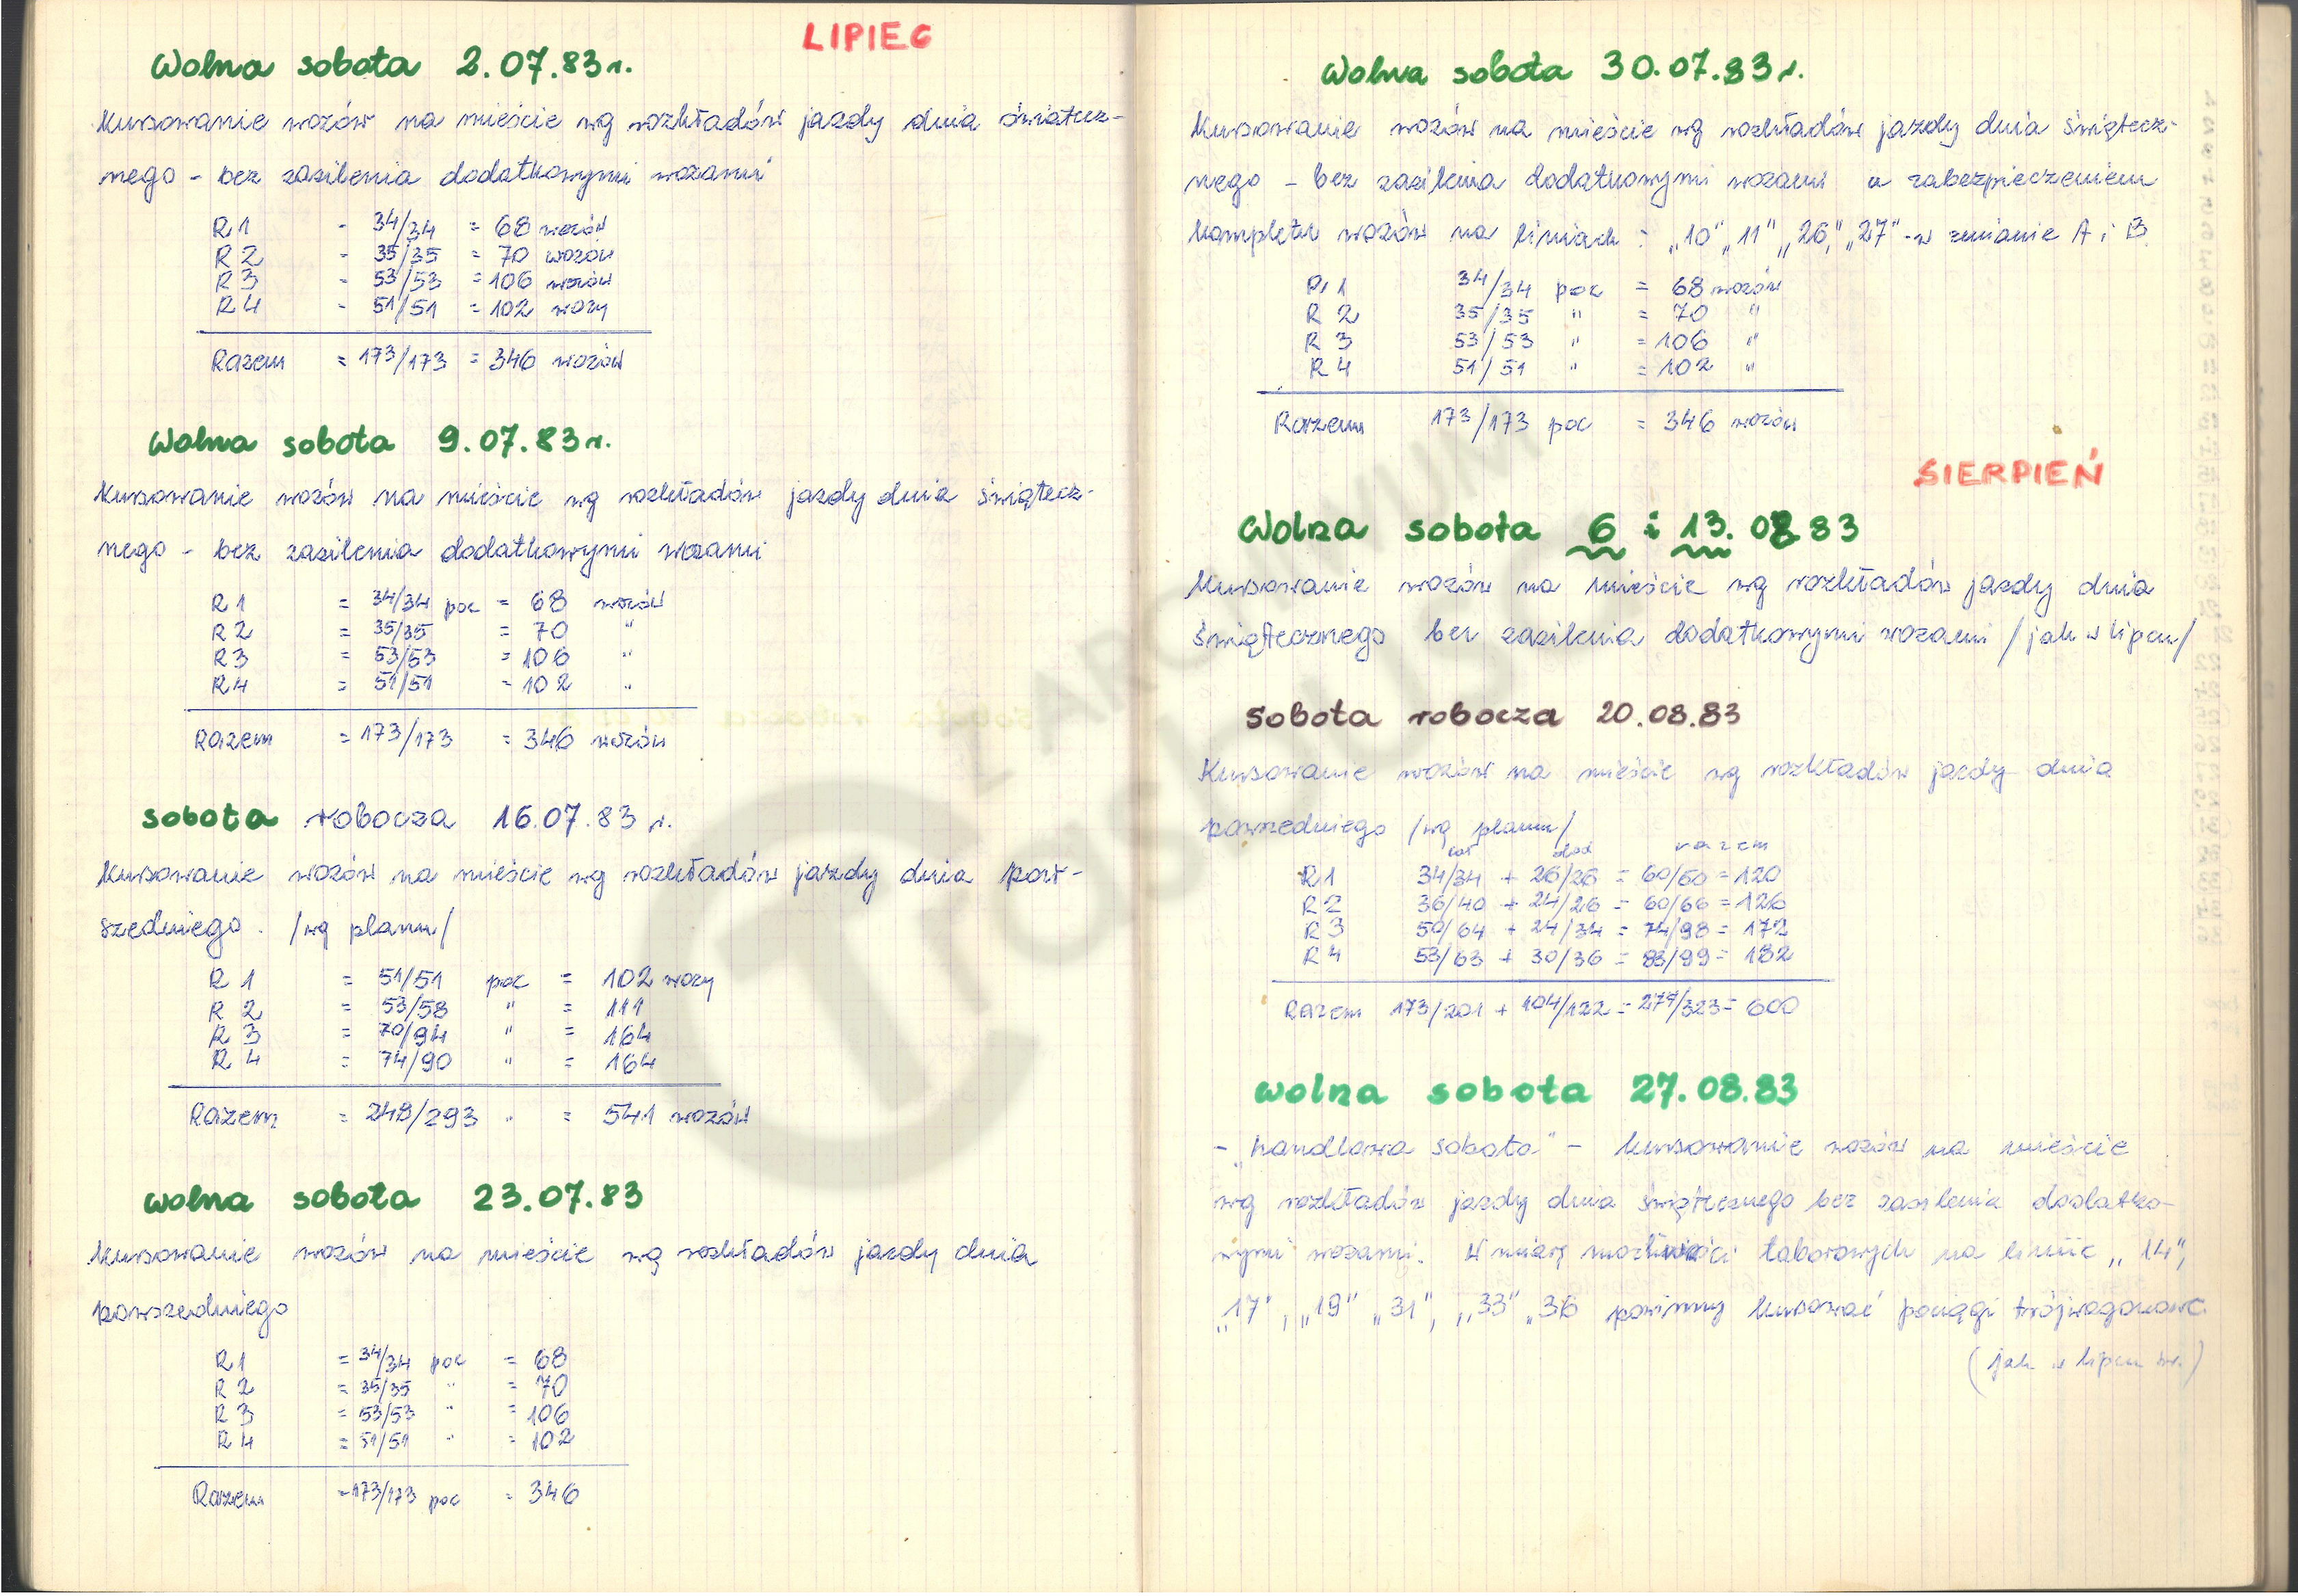 LIPIEC
Wolna sobota 2.07.83 r.
Kursowanie wozów na mieście wg rozkładów jazdy dnia świątecz-
nego - bez zasilenia dodatkowymi wozami
R 1 - 34/34 = 68 wozów
R 2 - 35/35 = 70 wozów
R 3 - 53/53 = 106 wozów
R 4 - 51/51 = 102 wozy
Razem = 173/173 = 346 wozów
Wolna sobota 9.07.83 r.
Kursowanie wozów na mieście wg rozkładów jazdy dnia świątecz-
nego - bez zasilenia dodatkowymi wozami
R 1 = 34/34 poc = 68 wozów
R 2 = 35/35 = 70 "
R 3 = 53/53 = 106 "
R 4 = 51/51 = 102 "
Razem = 173/173 = 346 wozów
Sobota robocza 16.07.83 r.
Kursowanie wozów na mieście wg rozkładów jazdy dnia pow-
szedniego. /wg planu/
R 1 = 51/51 poc = 102 wozy
R 2 = 53/58 " = 111
R 3 = 70/94 " = 164
R 4 = 74/90 " = 164
Razem = 248/293 " = 541 wozów
Wolna sobota 23.07.83
Kursowanie wozów na mieście wg rozkładów jazdy dnia
powszedniego
R 1 = 34/34 poc = 68
R 2 = 35/35 " = 70
R 3 = 53/53 " = 106
R 4 = 51/51 " = 102
Razem = 173/173 poc = 346
Wolna sobota 30.07.83 r.
Kursowanie wozów na mieście wg rozkładów jazdy dnia świątecz-
nego - bez zasilenia dodatkowymi wozami z zabezpieczeniem
kompletu wozów na liniach: „10" „11" „26," „27" - w zmianie A i B
R 1 34/34 poc = 68 wozów
R 2 35/35 " = 70 "
R 3 53/53 " = 106 "
R 4 51/51 " = 102 "
Razem 173/173 poc = 346 wozów
SIERPIEŃ
Wolna sobota 6 i 13.08 83
Kursowanie wozów na mieście wg rozkładów jazdy dnia
świątecznego bez zasilenia dodatkowymi wozami /jak w lipcu/
Sobota robocza 20.08.83
Kursowanie wozów na mieście wg rozkładów jazdy dnia
powszedniego /wg planu/
cał dod razem
R 1 34/34 + 26/26 = 60/60 = 120
R 2 36/40 + 24/26 = 60/66 = 126
R 3 50/64 + 24/34 = 74/98 = 172
R 4 53/63 + 30/36 = 83/99 = 182
Razem 173/201 + 104/122 = 277/323 = 600
Wolna sobota 27.08.83
- „handlowa sobota" - kursowanie wozów na mieście
wg rozkładów jazdy dnia świątecznego bez zasilenia dodatko-
wymi wozami. W miarę możliwości taborowych na linie „14",
„17", „19" „31", „33" „36 powinny kursować pociągi trójwagonowe.
(jak w lipcu br.)